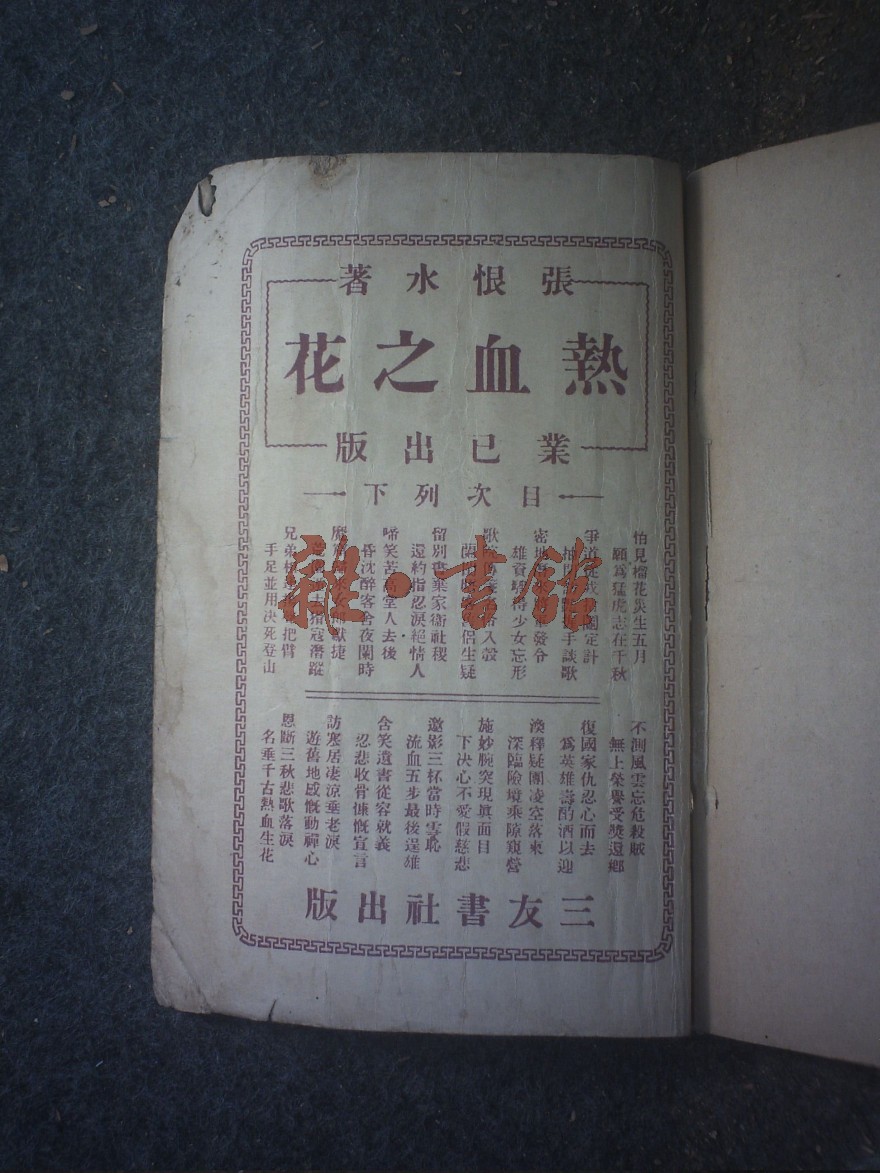 張恨水著
熱血之花
業已出版
目次列下
怕見榴花災生五月
願為猛虎志在千秋
爭道從戎
定計
手談歌
密地
發令
雄資
待少女忘形
歌
入彀
侶生疑
留別書棄家衞社稷
還約指忍淚絕情人
啼笑苦
堂人去後
昏沈醉客舍夜闌時
獻捷
寇潛蹤
兄弟
把臂
手足並用决死登山
不測風雲忘危殺賊
無上榮譽受獎還鄉
復國家仇忍心而去
為英雄壽酌酒以迎
渙釋疑團凌空落柬
深臨險境乘隙窺營
施妙腕突現真面目
下决心不愛假慈悲
邀影三杯當時雪恥
流血五步最後逞雄
含笑遺書從容就義
忍悲收骨慷慨宣言
訪寒居凄涼垂老淚
遊舊地感慨動禪心
恩斷三秋悲歌落淚
名垂千古熱血生花
三友書社出版
雜·書館